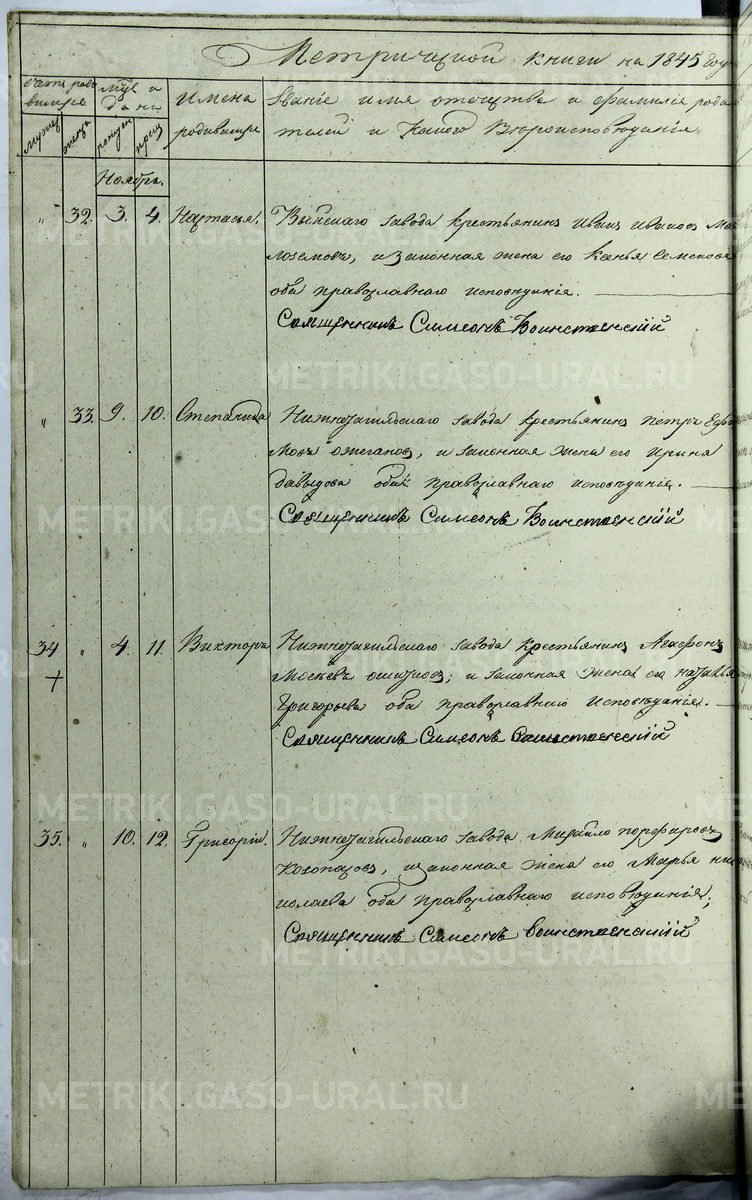 Метрической книги на 1845 году
Счетъ роди
вшихся
Муже
женщ
Мѣс и
дани
рожден
крещ
Имена
родившихся
Званіе имя отечества и фамиліе роди
телей и какого Вѣроисповѣданія
Ноябрь.
" 32. 3. 4. Настасья. Выйскаго завода крестьянинъ Иванъ Ивановъ Ма
лоземовъ, и законная жена его Ксенья Семенова
оба православнаго исповѣданія.
Священникъ Симеонъ Воинственскій
" 33. 9. 10. Степанида Нижнетагильскаго завода крестьянинъ Петръ Ефи
мовъ Ожегановъ, и законная жена его Ирина
Давыдова оба православнаго исповѣданія.
Священникъ Симеонъ Воинственскій
34 " 4. 11. Викторъ Нижнетагильскаго завода крестьянинъ Агафонъ
+ Москевъ; и законная жена его Наталья
Григорьева оба православнаго исповѣданія.
Священникъ Симеонъ Воинственскій
35. " 10. 12. Григорій. Нижнетагильскаго завода Михайло Порфировъ
Козопасовъ, и законная жена его Марья Ни
колаева оба православнаго исповѣданія;
Священникъ Симеонъ Воинственскій
METRIKI.GASO-URAL.RU